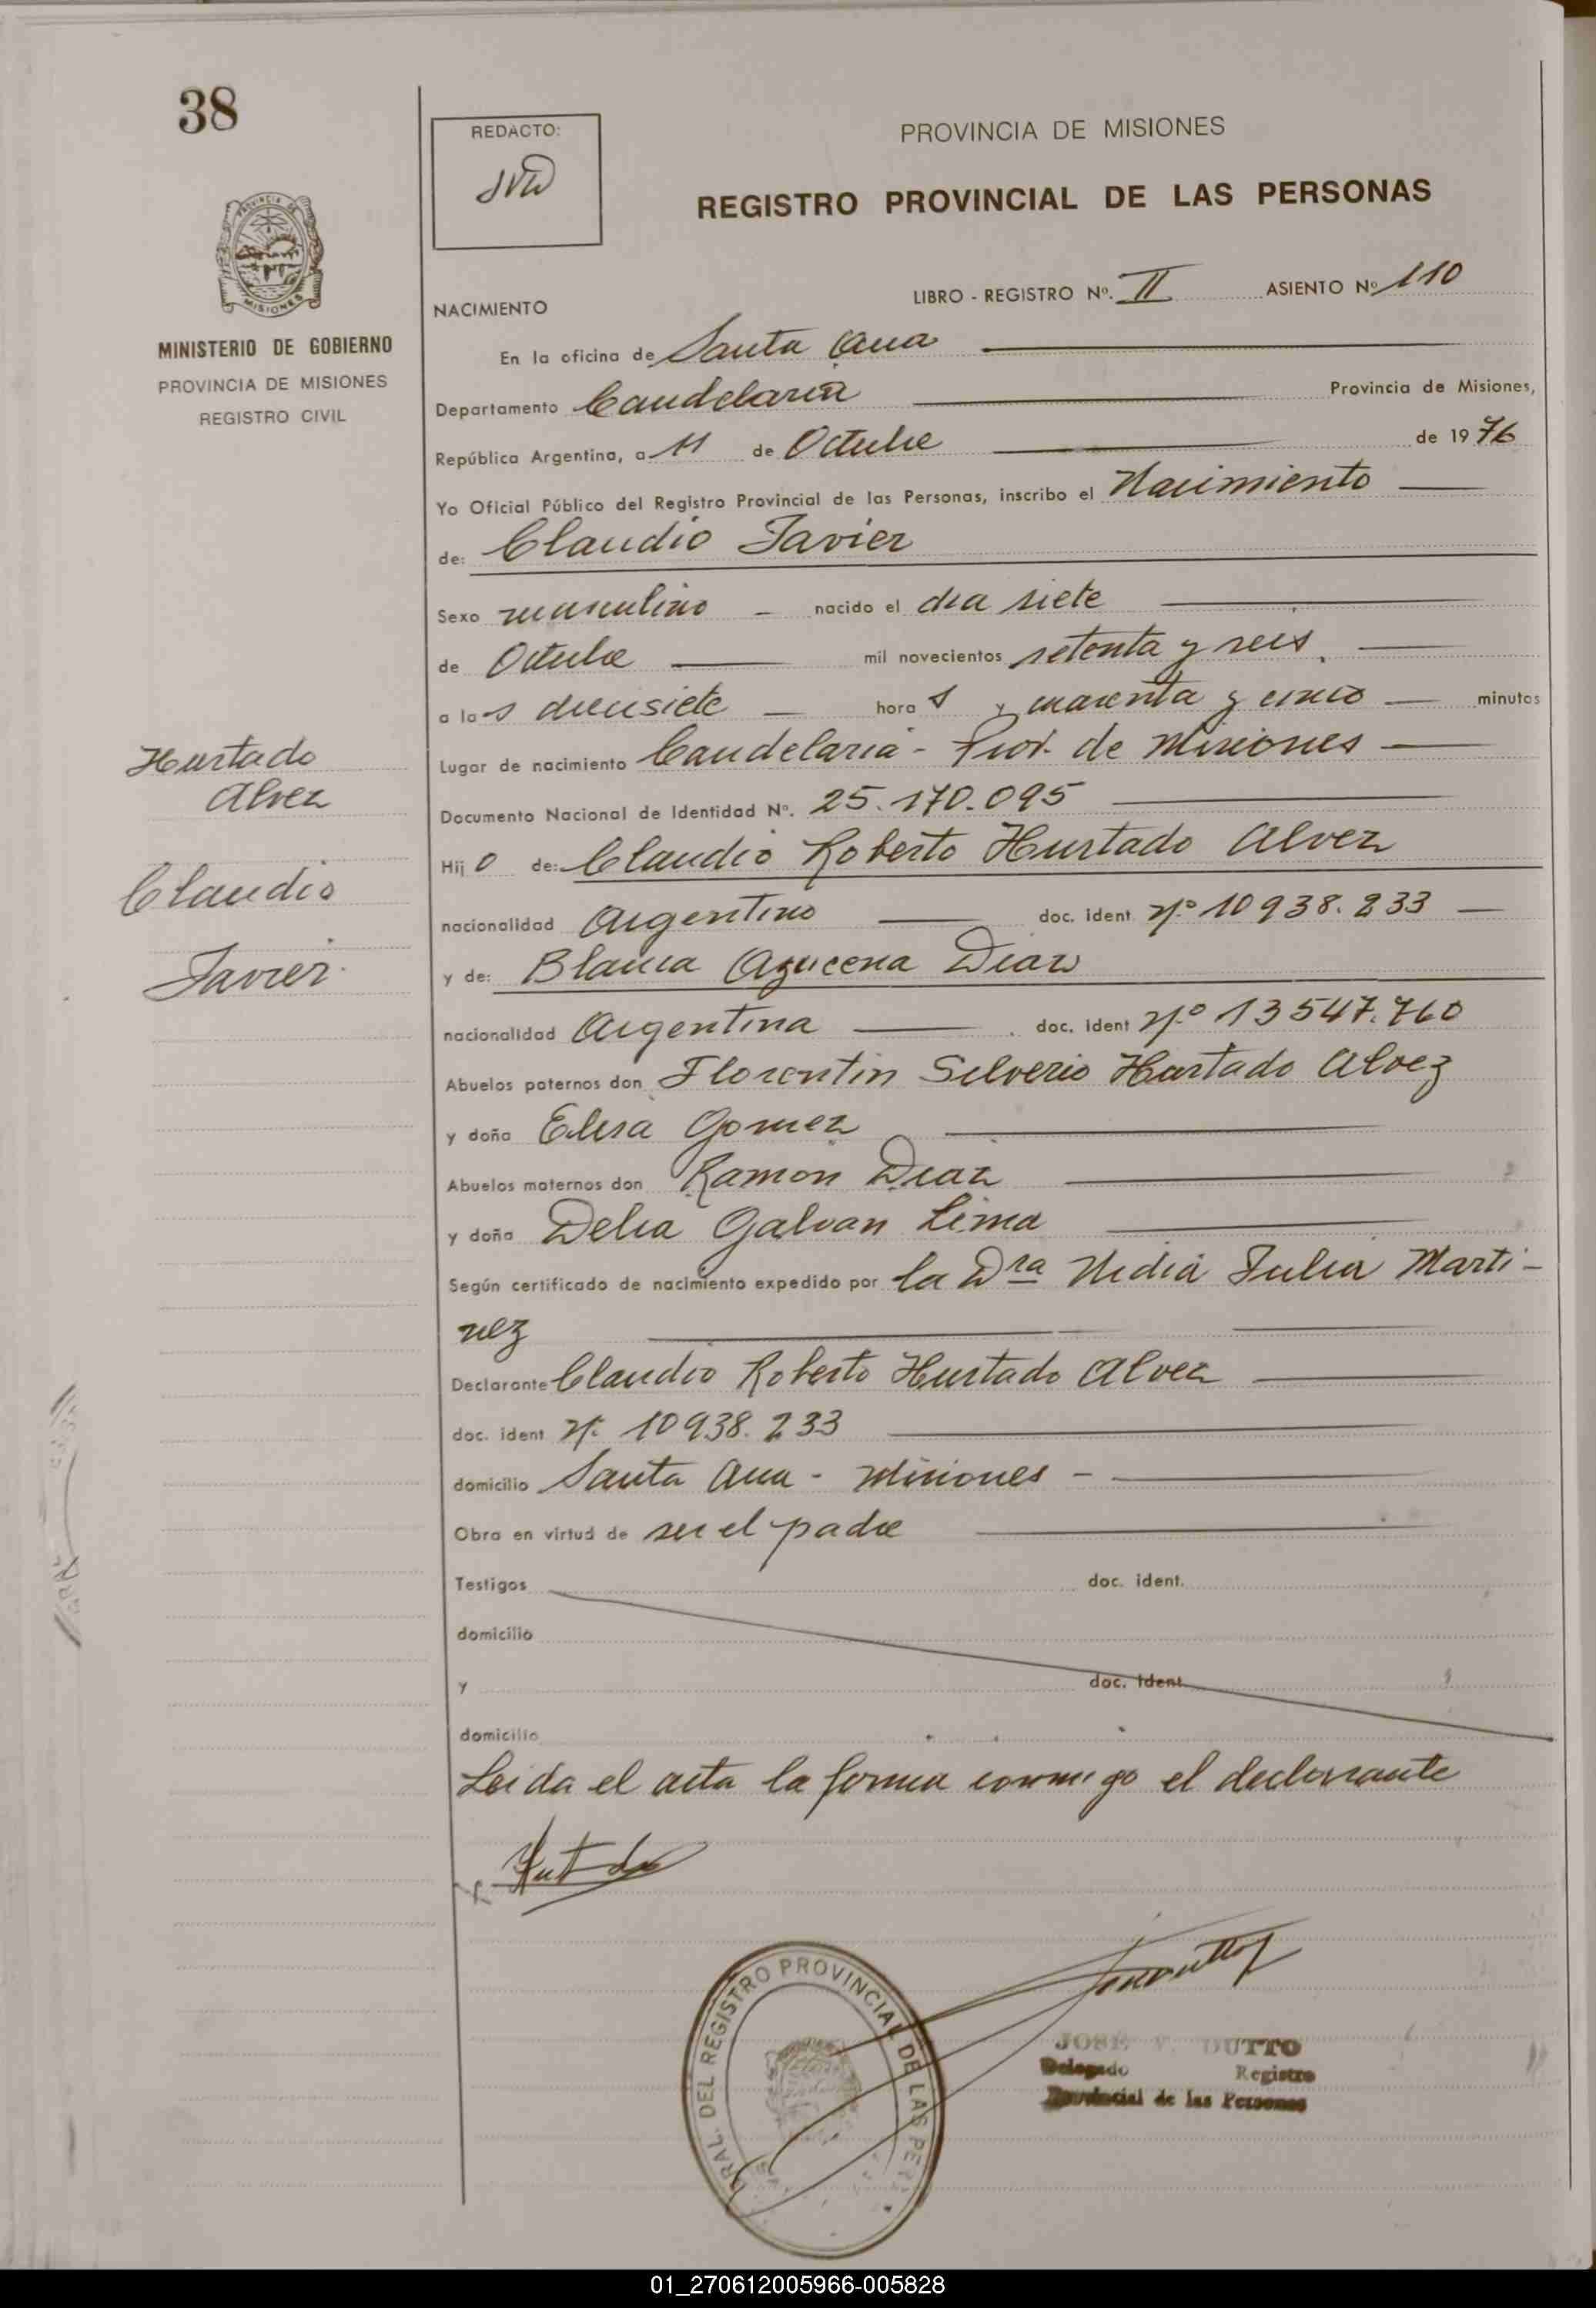 38
REDACTO:
PROVINCIA DE MISIONES
REGISTRO PROVINCIAL DE LAS PERSONAS
MISIONES
MINISTERIO DE GOBIERNO
PROVINCIA DE MISIONES
REGISTRO CIVIL
NACIMIENTO
LIBRO - REGISTRO Nº. II ASIENTO Nº 110
En la oficina de Santa Ana
Departamento Candelaria Provincia de Misiones,
República Argentina, a 11 de Octubre de 1976
Yo Oficial Público del Registro Provincial de las Personas, inscribo el Nacimiento
de: Claudio Javier
Sexo masculino - nacido el dia siete
de Octubre mil novecientos setenta y seis.
a las diecisiete horas y cuarenta y cinco minutos
Lugar de nacimiento Candelaria - Prov. de Misiones
Documento Nacional de Identidad Nº. 25.170.095
Hijo de: Claudio Roberto Hurtado Alvez
nacionalidad Argentino doc. ident. Nº 10938.233
y de: Blanca Azucena Diaz
nacionalidad Argentina doc. ident Nº 13547.760
Abuelos paternos don Florentin Silverio Hurtado Alvez
y doña Elisa Gomez
Abuelos maternos don Ramon Diaz
y doña Delia Galvan Lima
Según certificado de nacimiento expedido por la Dra Nidia Julia Marti-
nez
Declarante Claudio Roberto Hurtado Alvez
doc. ident Nº 10938.233
domicilio Santa Ana - Misiones -
Obra en virtud de ser el padre
Testigos doc. ident.
domicilio
y doc. ident
domicilio
Leida el acta la firma conmigo el declarante
Hurtado
Alvez
Claudio
Javier
GRAL. DEL REGISTRO PROVINCIAL DE LAS PER
JOSE V. DUTTO
Delegado Registro
Provincial de las Personas
01_270612005966-005828